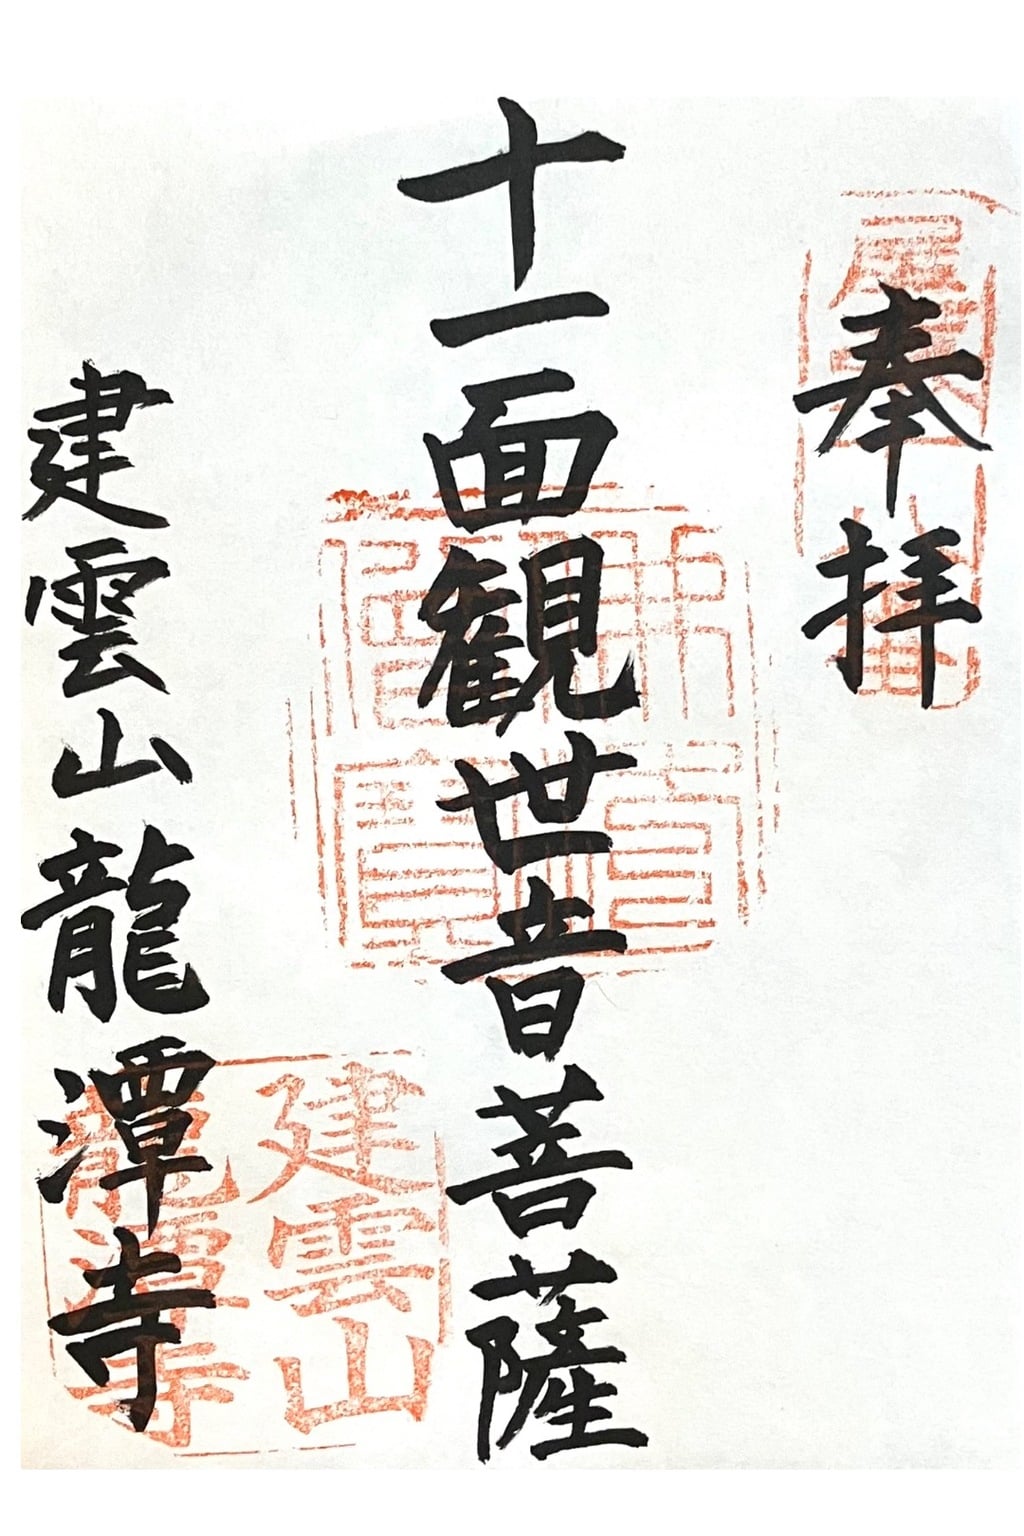 奉拝
十一面観世音菩薩
建雲山龍潭寺
建雲山
龍潭寺
佛法僧寶